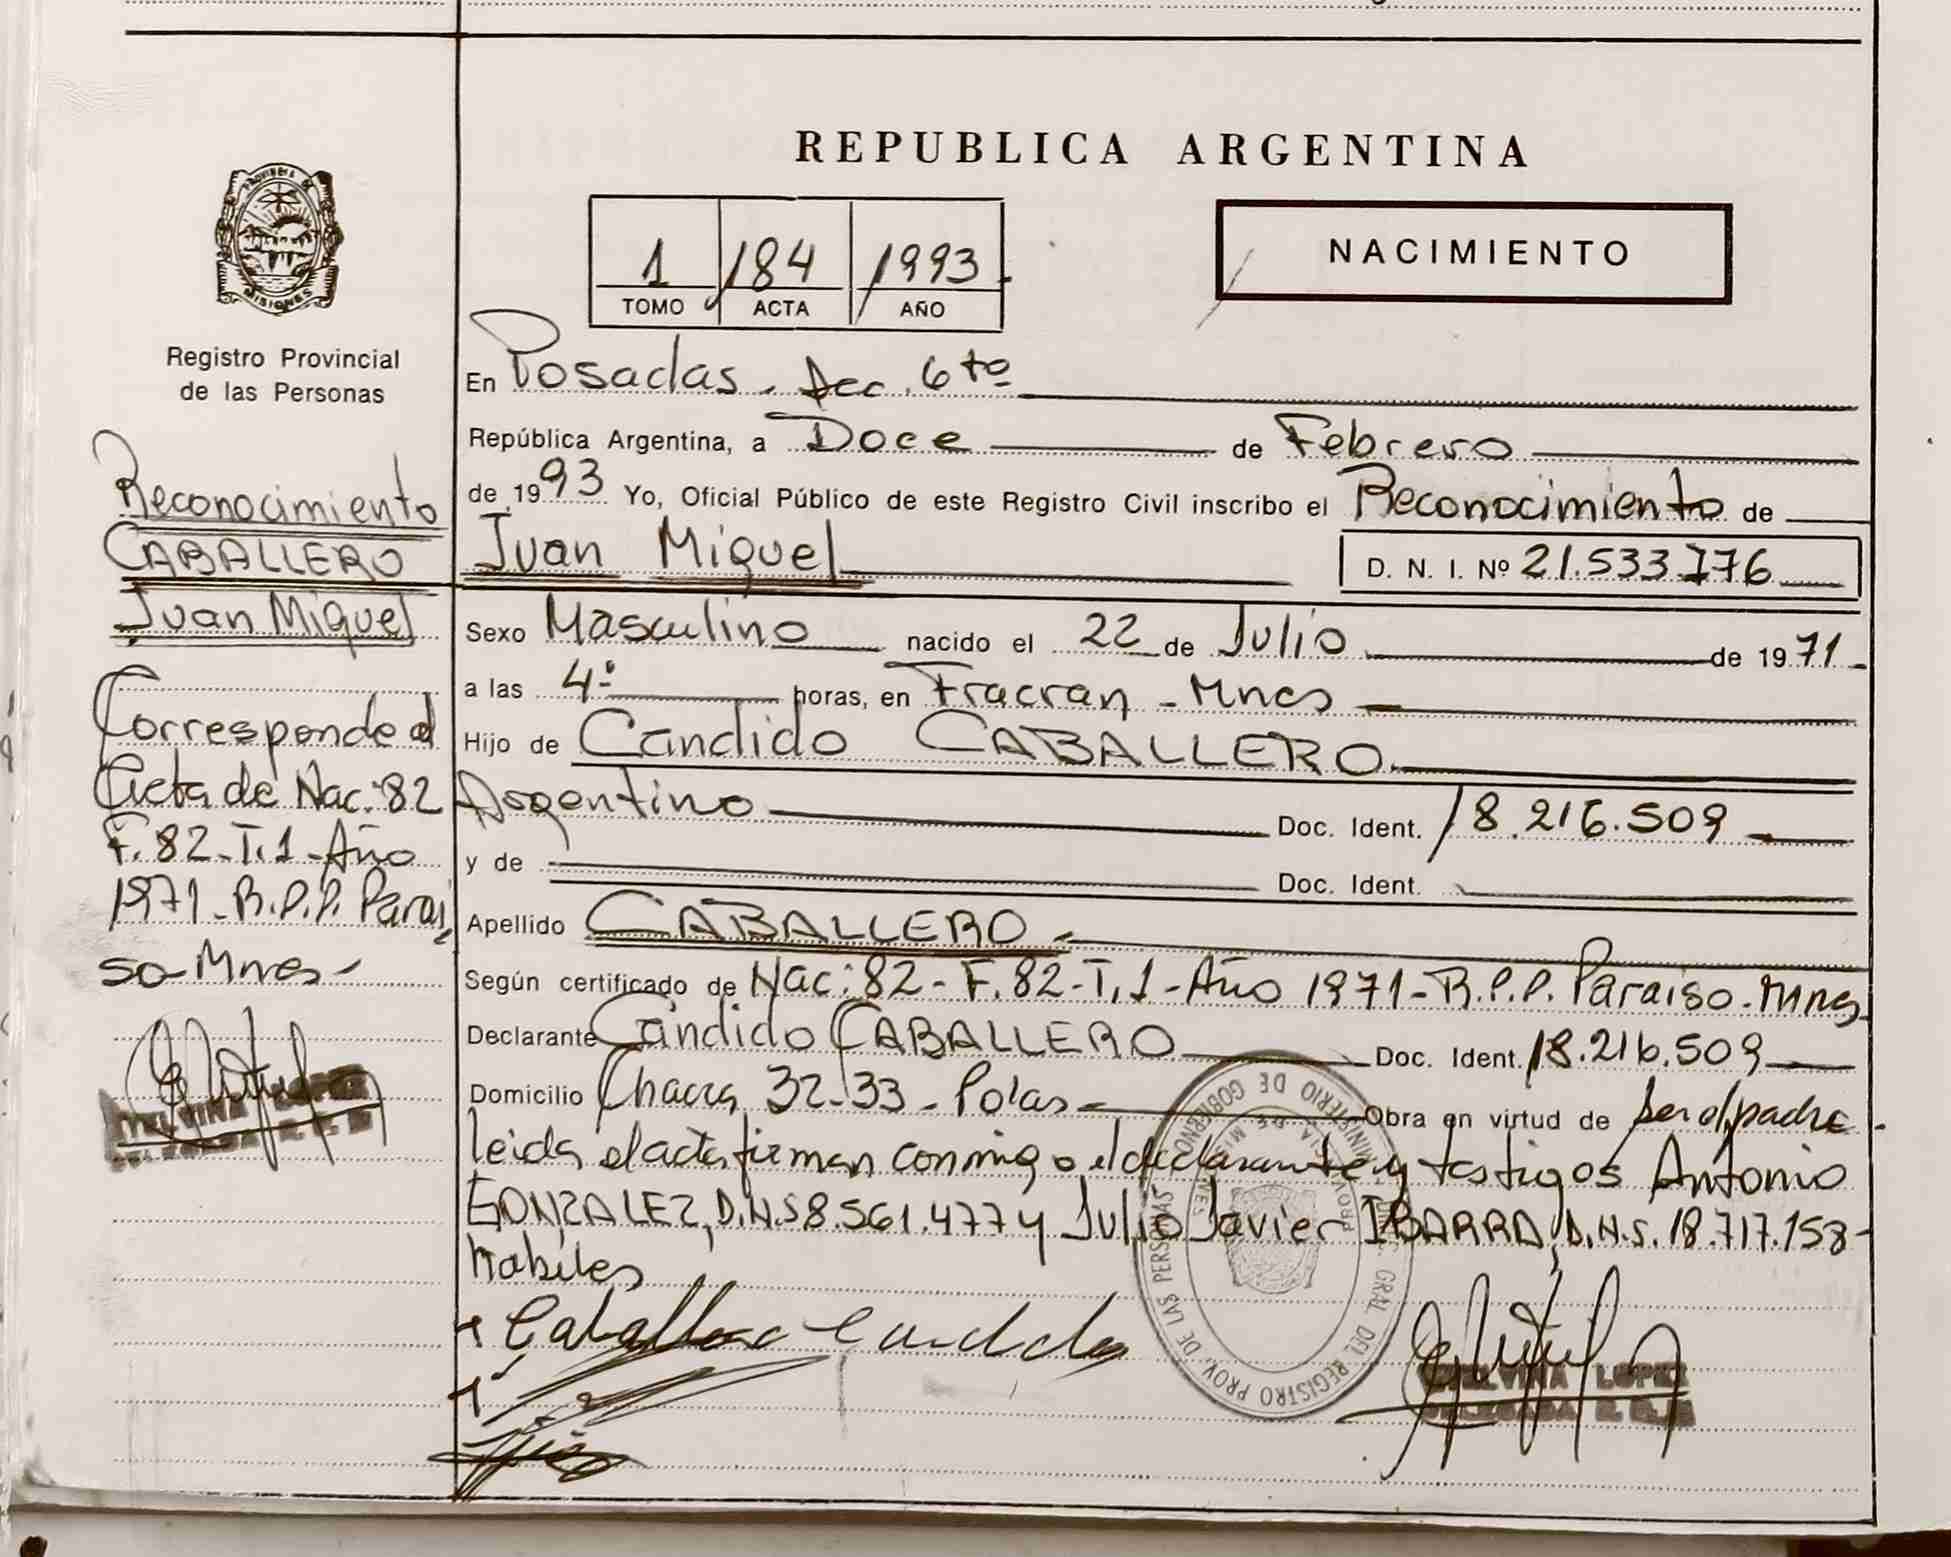 REPUBLICA ARGENTINA
1 184 1993
TOMO ACTA AÑO
NACIMIENTO
PROVINCIA DE
MISIONES
Registro Provincial
de las Personas
Reconocimiento
CABALLERO
Juan Miguel
Corresponde al
Acta de Nac: 82
F. 82-T.1-Año
1971-R.P.P. Parai
so-Mnes-
MELVINA LOPEZ
En Posadas. Sec. 6to
República Argentina, a Doce de Febrero
de 1993 Yo, Oficial Público de este Registro Civil inscribo el Reconocimiento de
Juan Miguel D. N. I. Nº 21.533.776
Sexo Masculino nacido el 22 de Julio de 1971
a las 4º horas, en Fracran - Mnes
Hijo de Candido CABALLERO
Argentino Doc. Ident. 18.216.509
y de Doc. Ident.
Apellido CABALLERO
Según certificado de Nac: 82- F. 82-T.1-Año 1971-R.P.P. Paraiso-Mnes
Declarante Candido CABALLERO Doc. Ident. 18.216.509
Domicilio Chacra 32-33- Pdas- Obra en virtud de ser el padre.
leida el acta firman conmigo el declarante y testigos Antonio
GONZALEZ, D.N.S 8.561.477 y Julio Javier IBARRA, D.N.S. 18.717.158-
habiles
Caballero Candido
MINISTERIO DE GOBIERNO
GRAL DEL REGISTRO PROV. DE LAS PERSONAS
PROVINCIA DE MISIONES
MELVINA LOPEZ
DELEGADA